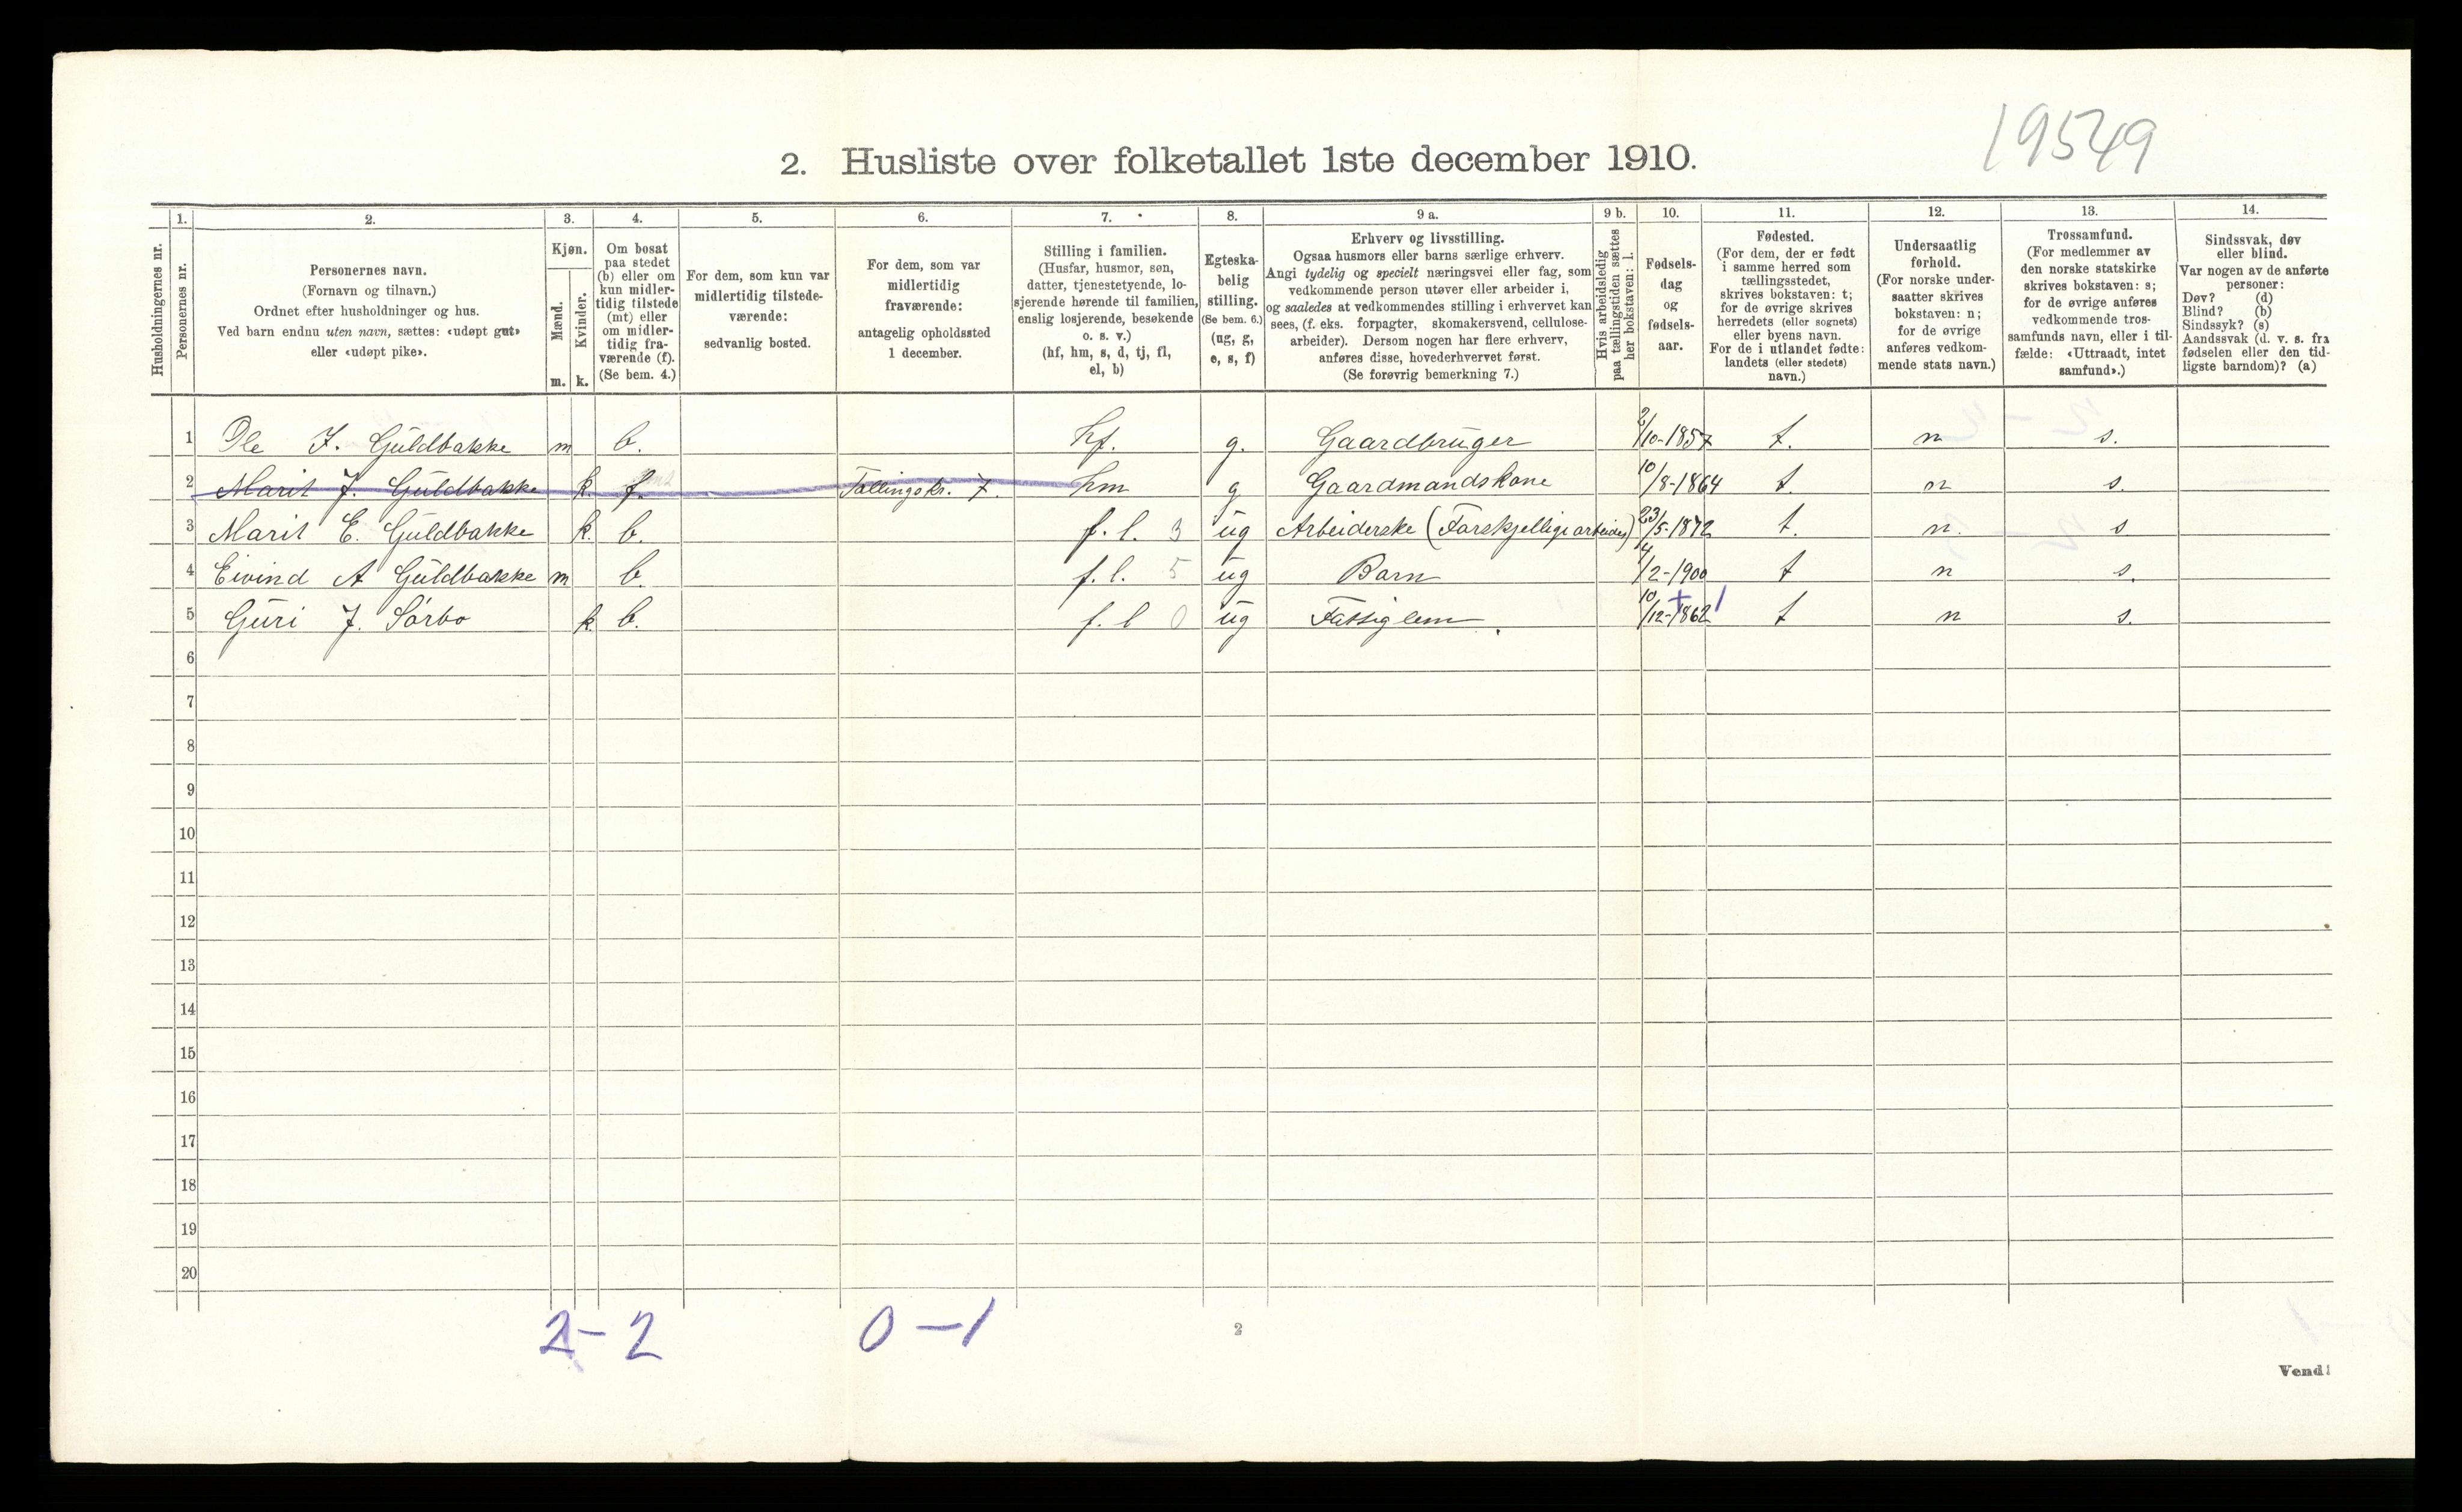 19549
2. Husliste over folketallet 1ste december 1910.
Husholdningernes nr.
1.
Personernes nr.
2.
Personernes navn.
(Fornavn og tilnavn.)
Ordnet efter husholdninger og hus.
Ved barn endnu uten navn, sættes: «udøpt gut»
eller «udøpt pike».
3.
Kjøn.
Mænd.
Kvinder.
m. k.
4.
Om bosat
paa stedet
(b) eller om
kun midler-
tidig tilstede
(mt) eller
om midler-
tidig fra-
værende (f).
(Se bem. 4.)
5.
For dem, som kun var
midlertidig tilstede-
værende:
sedvanlig bosted.
6.
For dem, som var
midlertidig
fraværende:
antagelig opholdssted
1 december.
7.
Stilling i familien.
(Husfar, husmor, søn,
datter, tjenestetyende, lo-
sjerende hørende til familien,
enslig losjerende, besøkende
o. s. v.)
(hf, hm, s, d, tj, fl,
el, b)
8.
Egteska-
belig
stilling.
(Se bem. 6.)
(ug, g,
e, s, f)
9 a.
Erhverv og livsstilling.
Ogsaa husmors eller barns særlige erhverv.
Angi tydelig og specielt næringsvei eller fag, som
vedkommende person utøver eller arbeider i,
og saaledes at vedkommendes stilling i erhvervet kan
sees, (f. eks. forpagter, skomakersvend, cellulose-
arbeider). Dersom nogen har flere erhverv,
anføres disse, hovederhvervet først.
(Se forøvrig bemerkning 7.)
9 b.
Hvis arbeidsledig
paa tællingstiden sættes
her bokstaven: l.
10.
Fødsels-
dag
og
fødsels-
aar.
11.
Fødested.
(For dem, der er født
i samme herred som
tællingsstedet,
skrives bokstaven: t;
for de øvrige skrives
herredets (eller sognets)
eller byens navn.
For de i utlandet fødte:
landets (eller stedets)
navn.)
12.
Undersaatlig
forhold.
(For norske under-
saatter skrives
bokstaven: n;
for de øvrige
anføres vedkom-
mende stats navn.)
13.
Trossamfund.
(For medlemmer av
den norske statskirke
skrives bokstaven: s;
for de øvrige anføres
vedkommende tros-
samfunds navn, eller i til-
fælde: «Uttraadt, intet
samfund».)
14.
Sindssvak, døv
eller blind.
Var nogen av de anførte
personer:
Døv? (d)
Blind? (b)
Sindssyk? (s)
Aandssvak (d. v. s. fra
fødselen eller den tid-
ligste barndom)? (a)
1 Ole J. Guldbakke m b. hf. g. Gaardbruger 2/10-1857 t. n s.
2 Marit J. Guldbakke k. f. Tællingskr. 7. hm g Gaardmandskone 10/8-1864 t. n s.
3 Marit E. Guldbakke k. b. f. l. 3 ug Arbeiderske (Forskjellige arbeider) 23/5-1872 t. n. s
4 Eivind A Guldbakke m b. f. l. 5 ug Barn 4/2-1900 t n s.
5 Guri J. Sørbo k. b. f. l 0 ug Fattiglem 10/12-1862 t n s.
6
7
8
9
10
11
12
13
14
15
16
17
18
19
20
2-2 0-1
2
Vend!